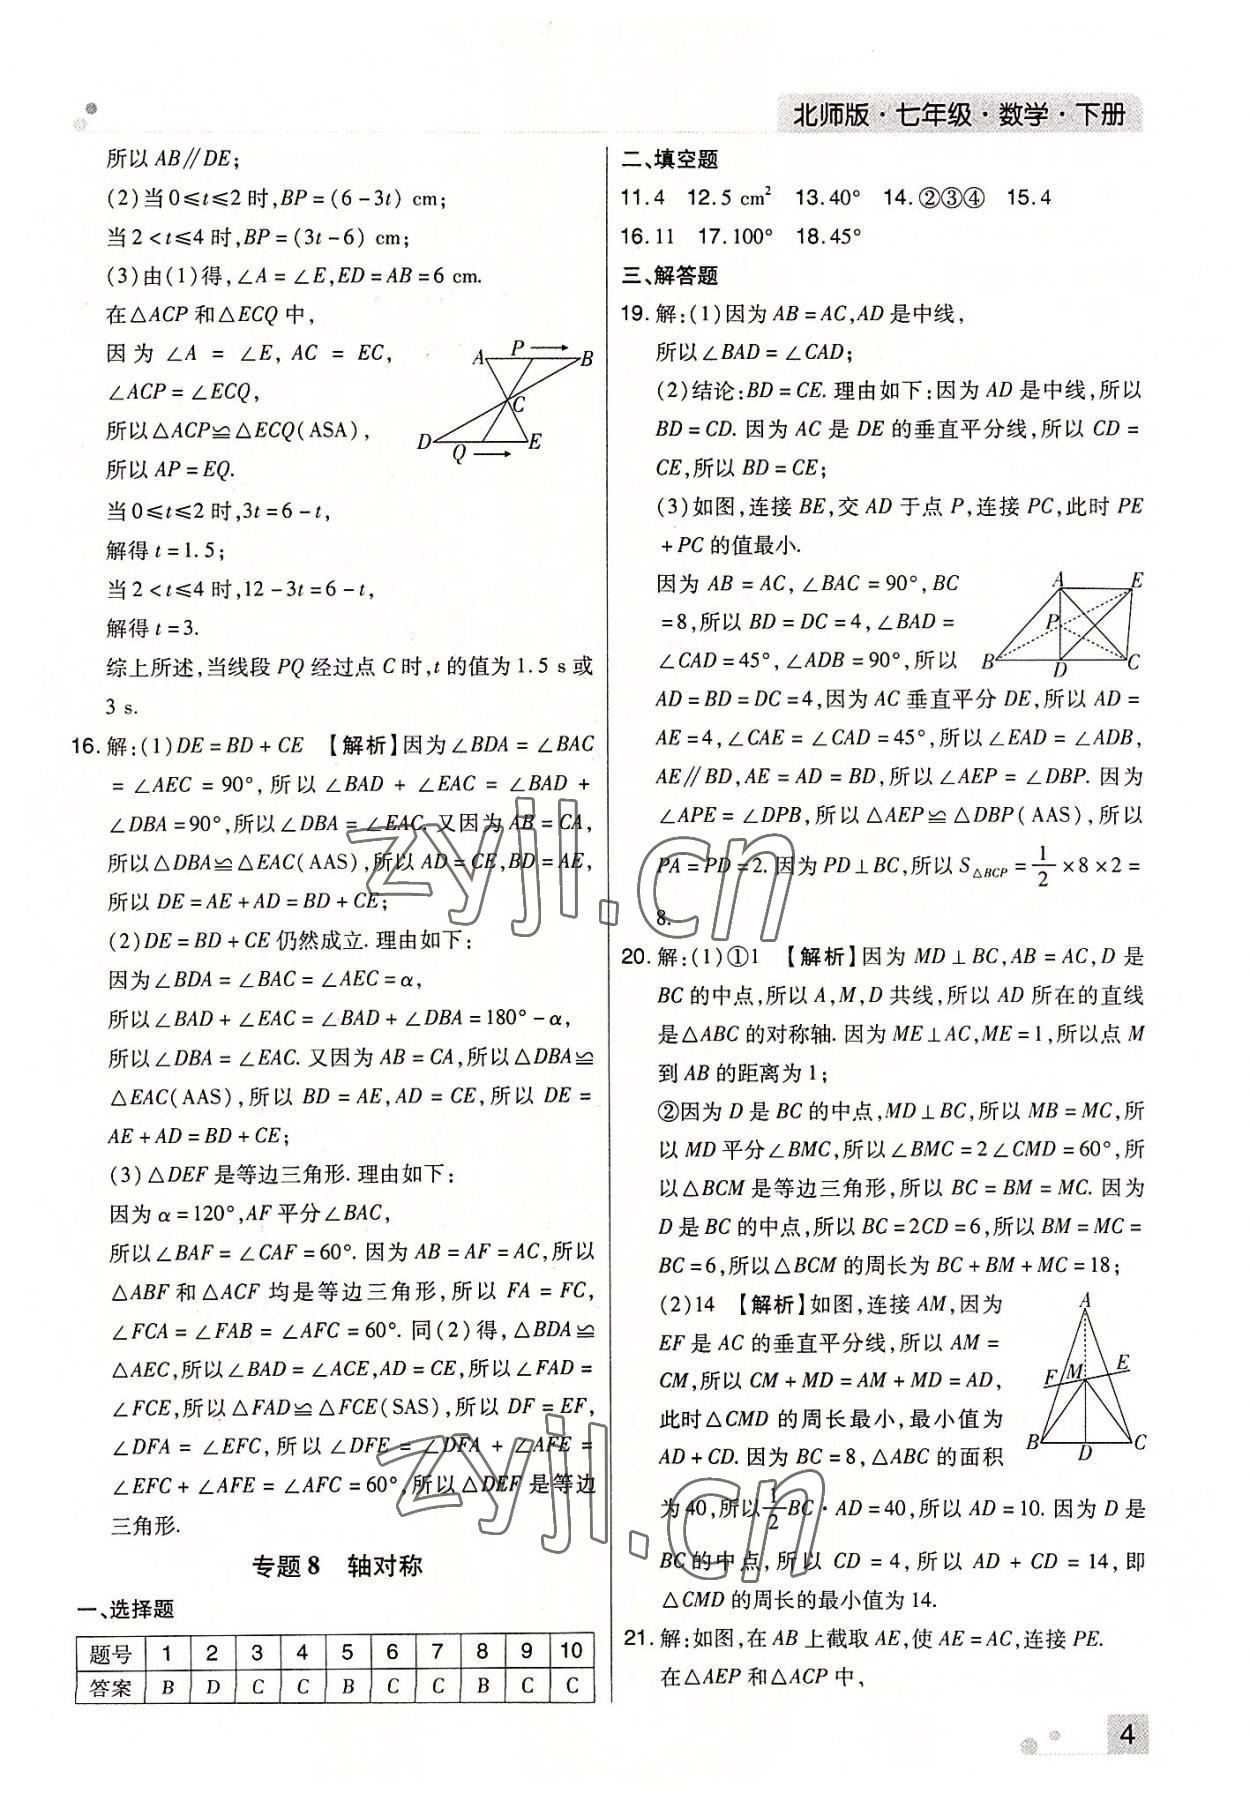 北师版·七年级·数学·下册
所以 AB∥DE;
(2)当 0≤t≤2 时,BP=(6-3t) cm;
当 2<t≤4 时,BP=(3t-6) cm;
(3)由(1)得,∠A=∠E,ED=AB=6 cm.
在△ACP 和△ECQ 中,
因为 ∠A = ∠E, AC = EC,
∠ACP=∠ECQ,
所以△ACP≌△ECQ(ASA),
所以 AP=EQ.
A P B
C
D Q E
当 0≤t≤2 时,3t=6-t,
解得 t=1.5;
当 2<t≤4 时,12-3t=6-t,
解得 t=3.
综上所述,当线段 PQ 经过点 C 时,t 的值为 1.5 s 或
3 s.
16.解:(1)DE=BD+CE 【解析】因为∠BDA=∠BAC
=∠AEC=90°,所以∠BAD+∠EAC=∠BAD+
∠DBA=90°,所以∠DBA=∠EAC.又因为AB=CA,
所以△DBA≌△EAC(AAS),所以AD=CE,BD=AE,
所以 DE=AE+AD=BD+CE;
(2)DE=BD+CE 仍然成立.理由如下:
因为∠BDA=∠BAC=∠AEC=α,
所以∠BAD+∠EAC=∠BAD+∠DBA=180°-α,
所以∠DBA=∠EAC.又因为AB=CA,所以△DBA≌
△EAC(AAS),所以 BD=AE,AD=CE,所以 DE=
AE+AD=BD+CE;
(3)△DEF 是等边三角形.理由如下:
因为 α=120°,AF 平分∠BAC,
所以∠BAF=∠CAF=60°.因为 AB=AF=AC,所以
△ABF 和△ACF 均是等边三角形,所以 FA=FC,
∠FCA=∠FAB=∠AFC=60°.同(2)得,△BDA≌
△AEC,所以∠BAD=∠ACE,AD=CE,所以∠FAD=
∠FCE,所以△FAD≌△FCE(SAS),所以 DF=EF,
∠DFA=∠EFC,所以∠DFE=∠DFA+∠AFE=
∠EFC+∠AFE=∠AFC=60°,所以△DEF 是等边
三角形.
专题8 轴对称
一、选择题
题号 1 2 3 4 5 6 7 8 9 10
答案 B D C C B C C B C C
二、填空题
11.4 12.5 cm² 13.40° 14.②③④ 15.4
16.11 17.100° 18.45°
三、解答题
19.解:(1)因为 AB=AC,AD 是中线,
所以∠BAD=∠CAD;
(2)结论:BD=CE.理由如下:因为 AD 是中线,所以
BD=CD.因为 AC 是 DE 的垂直平分线,所以 CD=
CE,所以 BD=CE;
(3)如图,连接 BE,交 AD 于点 P,连接 PC,此时 PE
+PC 的值最小.
因为 AB=AC,∠BAC=90°,BC
=8,所以 BD=DC=4,∠BAD=
∠CAD=45°,∠ADB=90°,所以
A E
P
B D C
AD=BD=DC=4,因为 AC 垂直平分 DE,所以 AD=
AE=4,∠CAE=∠CAD=45°,所以∠EAD=∠ADB,
AE∥BD,AE=AD=BD,所以∠AEP=∠DBP.因为
∠APE=∠DPB,所以△AEP≌△DBP(AAS),所以
PA=PD=2.因为 PD⊥BC,所以 S△BCP=1/2×8×2=
8.
20.解:(1)①1 【解析】因为 MD⊥BC,AB=AC,D 是
BC 的中点,所以 A,M,D 共线,所以 AD 所在的直线
是△ABC 的对称轴.因为 ME⊥AC,ME=1,所以点 M
到 AB 的距离为1;
②因为 D 是 BC 的中点,MD⊥BC,所以 MB=MC,所
以 MD 平分∠BMC,所以∠BMC=2∠CMD=60°,所
以△BCM 是等边三角形,所以 BC=BM=MC.因为
D 是 BC 的中点,所以 BC=2CD=6,所以 BM=MC=
BC=6,所以△BCM 的周长为 BC+BM+MC=18;
(2)14 【解析】如图,连接 AM,因为
EF 是 AC 的垂直平分线,所以 AM=
CM,所以 CM+MD=AM+MD=AD,
此时△CMD 的周长最小,最小值为
AD+CD.因为 BC=8,△ABC 的面积
A
F M E
B D C
为40,所以1/2BC·AD=40,所以 AD=10.因为 D 是
BC 的中点,所以 CD=4,所以 AD+CD=14,即
△CMD 的周长的最小值为14.
21.解:如图,在 AB 上截取 AE,使 AE=AC,连接 PE.
在△AEP 和△ACP 中,
4
zyjl.cn
zyjl.cn